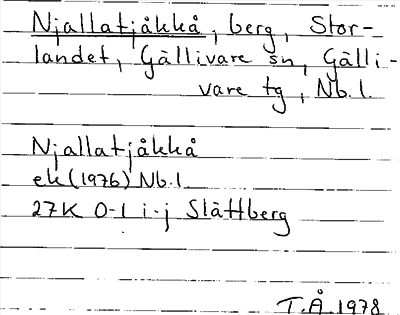 Njallatjåkkå, berg, Stor-
landet, Gällivare sn, Gälli-
vare tg, Nb.l.
Njallatjåkkå
ek (1976) Nb.l
27K 0-1 i-j Slättberg
T.Å. 1978